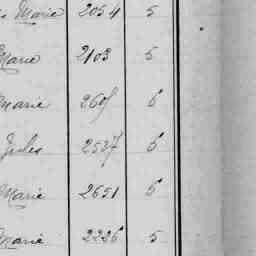 Marie 2054 5
Marie 2103 5
Marie 2601 5
Jules 2537 5
Marie 2651 5
Marie 2226 5